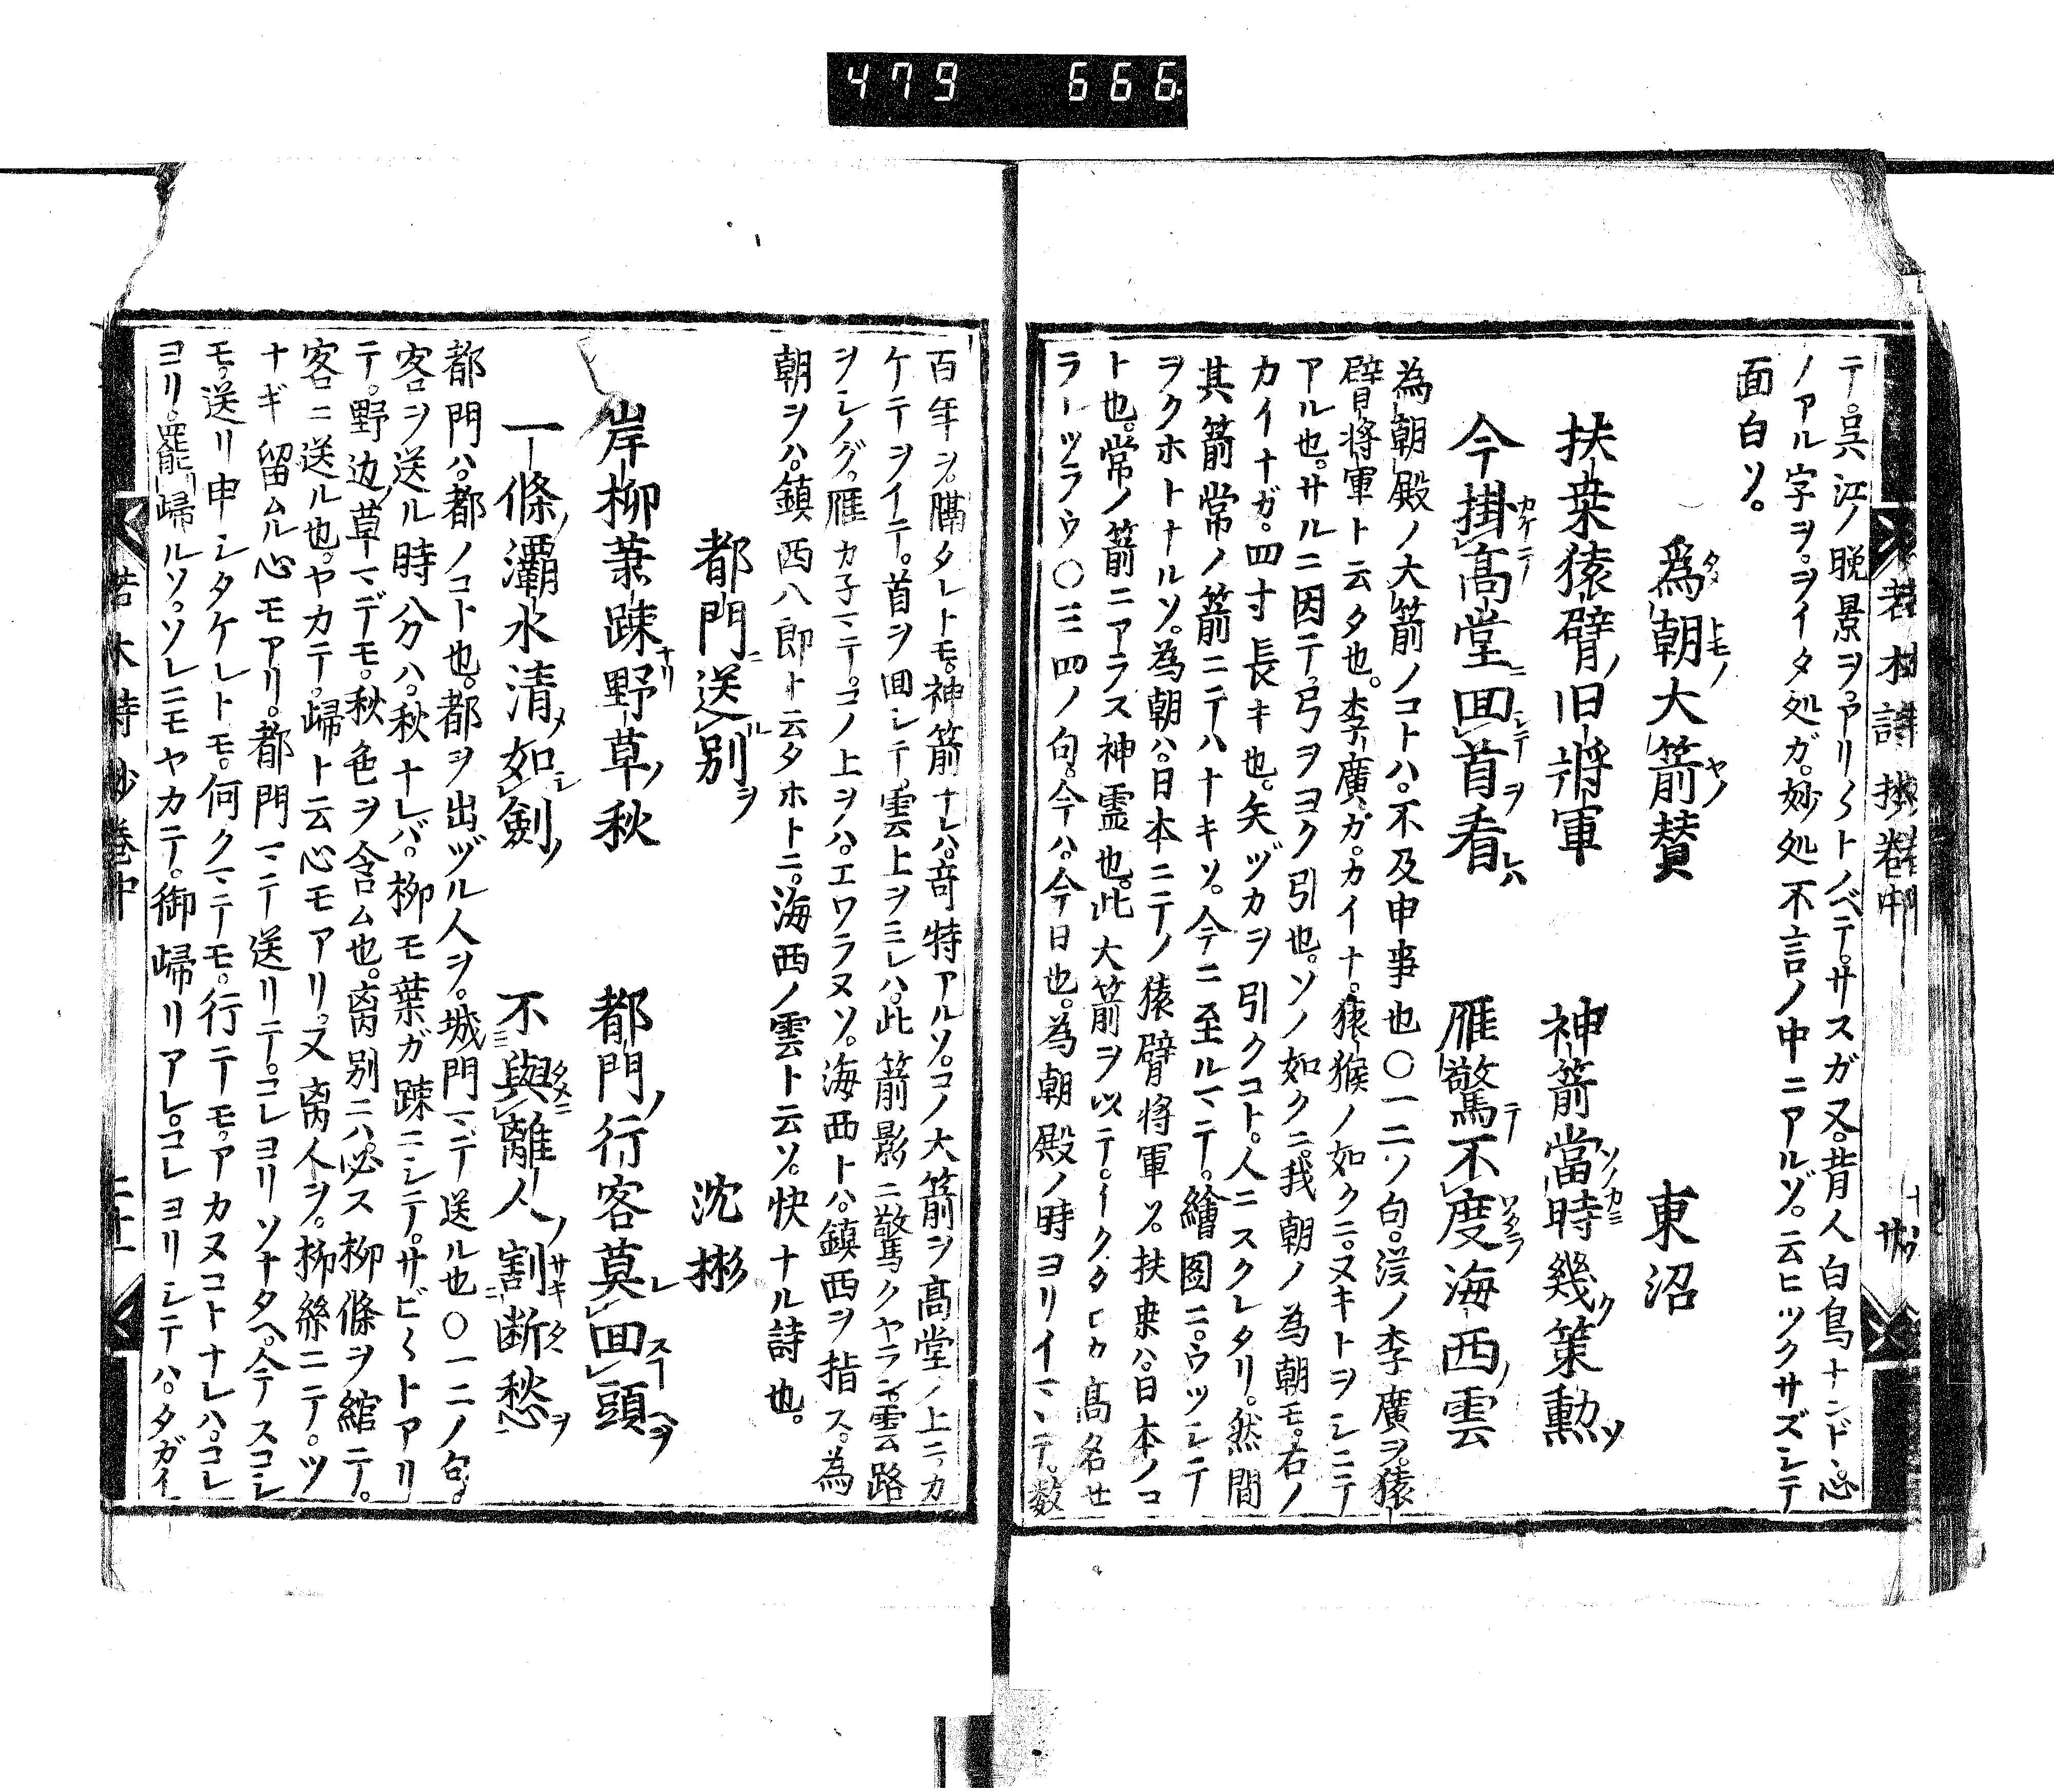 479 666
テ。呉江ノ晩景ヲ。アリ〱トノベテ。サスガ又。昔人白鳥ナンド、。忘
ノアル字ヲ。ヲイタ処ガ。妙処不言ノ中ニアルゾ。云ヒツクサズシテ
面白ソ。
爲朝大箭賛 東沼
扶桒猿臂ノ旧將軍 神箭當時幾策勳
今掛髙堂回首看 雁驚不度海西雲
為朝殿ノ大箭ノコトハ。不及申事也〇一二ノ句。漢ノ李廣ヲ。猿
臂將軍ト云タ也。李廣ガ。カイナ。猿猴ノ如クニ。ヌキトヲシニテ
アル也。サルニ因テ。弓ヲヨク引也。ソノ如クニ。我朝ノ為朝モ。右ノ
カイナガ。四寸長キ也。矢ヅカヲ引クコト。人ニスクレタリ。然間
其箭常ノ箭ニテハナキソ。今ニ至ルマテ。繪図ニ。ウツシテ
ヲクホトナルソ。為朝ハ。日本ニテノ猿臂将軍ソ。扶桒ハ。日本ノコ
ト也。常ノ箭ニアラス神霊也。此大箭ヲ以テ。イクタヒカ髙名セ
ラレツラウ〇三四ノ句。今ハ。今日也。為朝殿ノ時ヨリイマヽテ。数
百年ヲ。隔タレトモ。神箭ナレハ。竒特アルソ。コノ大箭ヲ髙堂ノ上ニカ
ケテヲイテ。首ヲ回シテ。雲上ヲミレハ。此箭影ニ驚クヤラン。雲路
ヲシノグ。雁カ子マテ。コノ上ヲハ。エワラヌソ。海西トハ。鎮西ヲ指ス。為
朝ヲハ。鎮西八郎ト云タホトニ。海西ノ雲ト云ソ。快ナル詩也。
都門送別 沈彬
岸柳葉踈野草ノ秋 都門ノ行客莫回頭
一條ノ灞水清如剣 不與離人割断愁
都門ハ。都ノコト也。都ヲ出ヅル人ヲ。城門マデ送ル也〇一二ノ句。
客ヲ送ル時分ハ。秋ナレバ。柳モ葉ガ踈ニシテ。サビ〱トアリ
テ。野边ノ草マデモ。秋色ヲ含ム也。离別ニハ。必ス柳條ヲ綰テ。
客ニ送ル也。ヤカテ。歸ト云心モアリ。又离人ヲ。柳絲ニテ。ツ
ナギ留ムル心モアリ。都門マテ送リテ。コレヨリソナタヘ。今テスコシ
モ。送リ申シタケレトモ。何クマテモ。行テモ。アカヌコトナレハ。コレ
ヨリ。罷歸ルソ。ソレニモヤカテ。御歸リアレ。コレヨリシテハ。タガイ